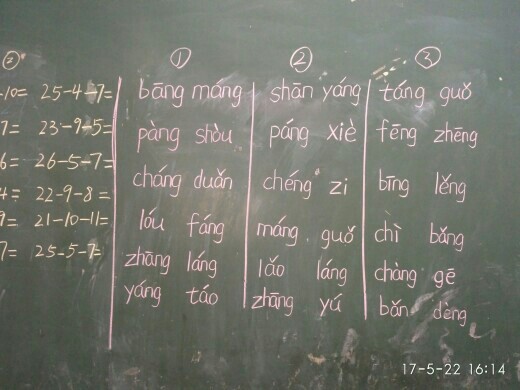 ② ① ② ③
-10= 25-4-7= bāng máng shān yáng táng guǒ
7= 23-9-5= pàng shòu páng xiè fēng zhēng
6= 26-5-7= cháng duǎn chéng zi bīng lěng
4= 22-9-8= lóu fáng máng guǒ chì bǎng
9= 21-10-11= zhāng láng lǎo láng chàng gē
7= 25-5-7= yáng táo zhāng yú bǎn dèng
17-5-22 16:14